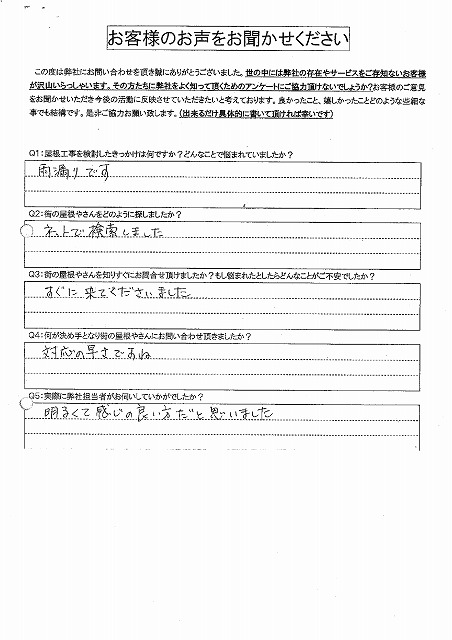 お客様のお声をお聞かせください
この度は弊社にお問い合わせを頂き誠にありがとうございました。世の中には弊社の存在やサービスをご存知ないお客様
が沢山いらっしゃいます。その方たちに弊社をよく知って頂くためのアンケートにご協力頂けないでしょうか?お客様のご意見
をお聞かせいただき今後の活動に反映させていただきたいと考えております。良かったこと、嬉しかったことどのような些細な
事でも結構です。是非ご協力お願い致します。(出来るだけ具体的に書いて頂ければ幸いです)
Q1:屋根工事を検討したきっかけは何ですか?どんなことで悩まれていましたか?
雨漏りです
Q2:街の屋根やさんをどのように探しましたか?
ネットで検索しました
Q3:街の屋根やさんを知りすぐにお問合せ頂けましたか?もし悩まれたとしたらどんなことがご不安でしたか?
すぐに来てくださいました
Q4:何が決め手となり街の屋根やさんにお問い合わせ頂きましたか?
対応の早さですね
Q5:実際に弊社担当者がお伺いしていかがでしたか?
明るくて感じの良い方だと思いました